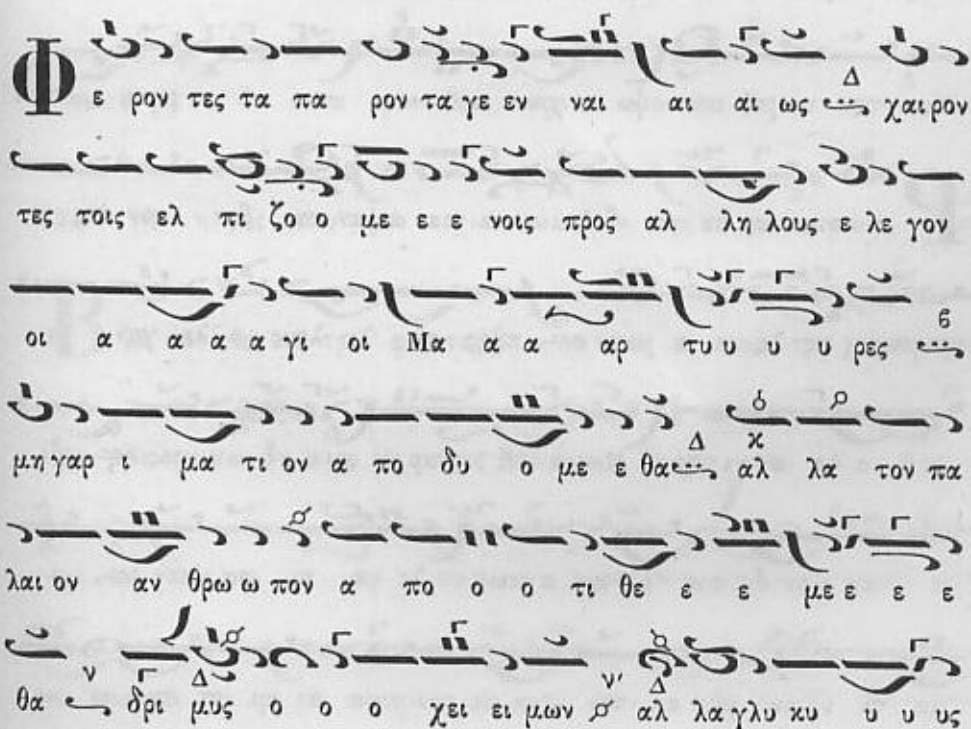 Φ ε ρον τες τα πα ρον τα γε εν ναι αι αι ως Δ χαι ρον
τες τοις ελ πι ζο ο με ε ε νοις προς αλ λη λους ε λε γον
οι α α α α γι οι Μα α α αρ τυ υ υ υ ρες ϐ
μη γαρ ι μα τι ον α πο δυ ο με ε θα Δ αλ λα τον πα
λαι ον αν θρω ω πον α πο ο ο τι θε ε ε με ε ε ε
θα ν δρι μυς ο ο ο χει ει μων ν' αλ λα γλυ κυ υ υ υς